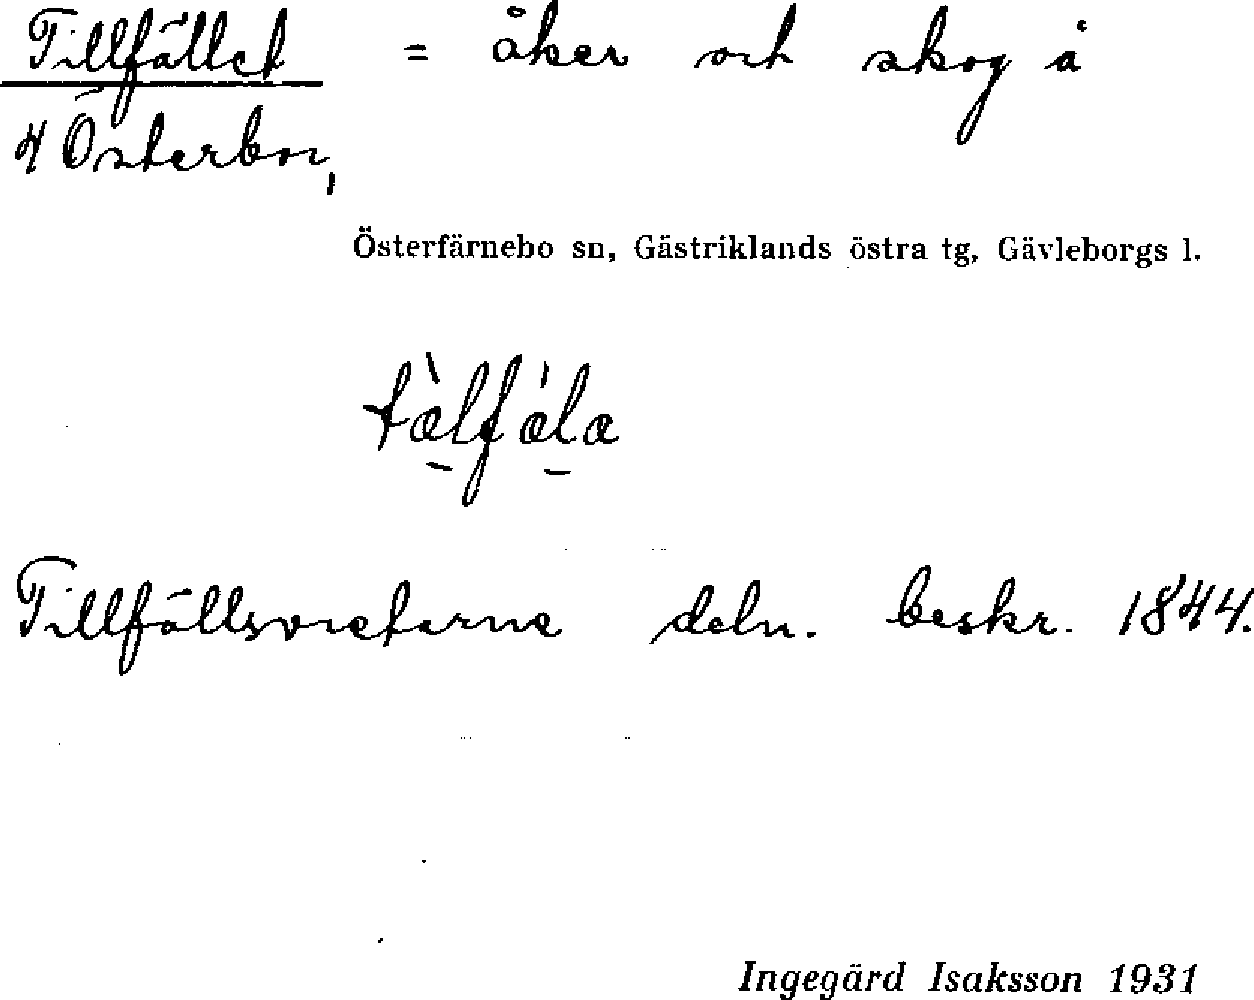 Tillfället = åker och skog å
4 Österbor,
Österfärnebo sn, Gästriklands östra tg, Gävleborgs l.
Tillfällsvretarne deln. beskr. 1844.
Ingegärd Isaksson 1931